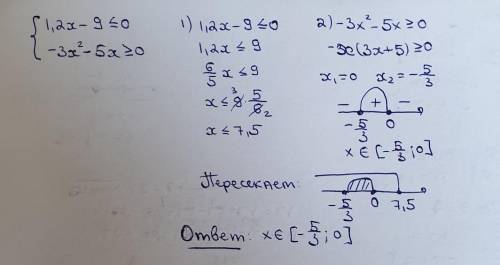 { 1,2x - 9 ≤ 0
-3x² - 5x ≥ 0
1) 1,2x - 9 ≤ 0
1,2x ≤ 9
6/5 x ≤ 9
x ≤ 9 3 · 5/6 2
x ≤ 7,5
2) -3x² - 5x ≥ 0
-x(3x+5) ≥ 0
x₁ = 0 x₂ = -5/3
- + -
-5/3 0
x ∈ [-5/3; 0]
Пересекаем:
-5/3 0 7,5
Ответ: x ∈ [-5/3; 0]